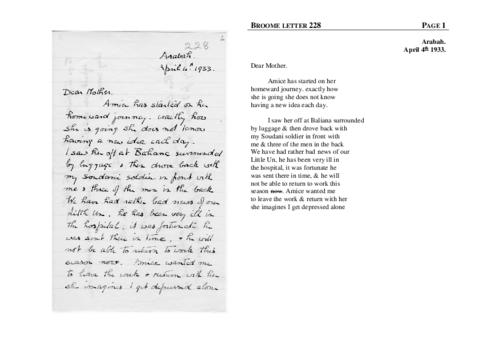 228
Arabah.
April 4th 1933.
Dear Mother.
Amice has started on her
homeward journey. exactly how
she is going she does not know
having a new idea each day.
I saw her off at Baliana surrounded
by luggage & then drove back with
my Soudani soldier in front with
me & three of the men in the back
We have had rather bad news of our
Little Un, he has been very ill in
the hospital, it was fortunate he
was sent there in time, & he will
not be able to return to work this
season now. Amice wanted me
to leave the work & return with her
she imagines I get depressed alone
BROOME LETTER 228 PAGE 1
Arabah.
April 4th 1933.
Dear Mother.
Amice has started on her
homeward journey. exactly how
she is going she does not know
having a new idea each day.
I saw her off at Baliana surrounded
by luggage & then drove back with
my Soudani soldier in front with
me & three of the men in the back
We have had rather bad news of our
Little Un, he has been very ill in the
hospital, it was fortunate he
was sent there in time, & he will
not be able to return to work this
season now. Amice wanted me
to leave the work & return with her
she imagines I get depressed alone